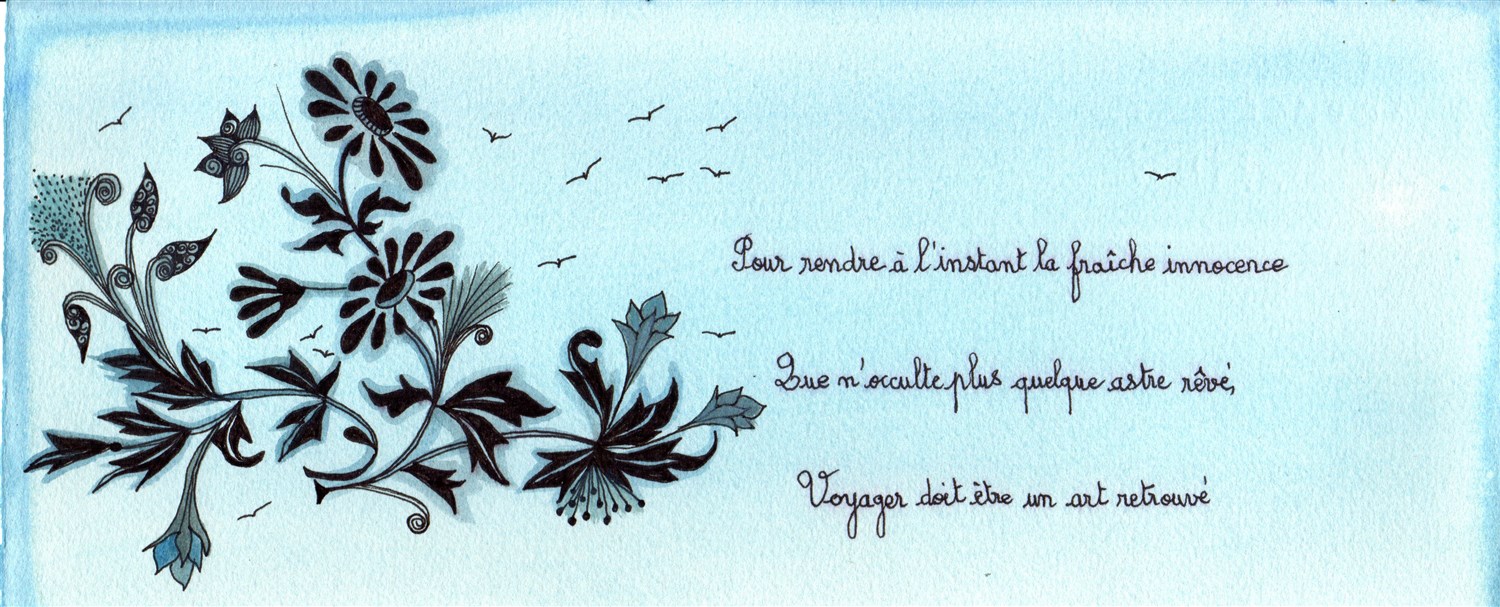 Pour rendre à l'instant la fraîche innocence
Que n'occulte plus quelque astre rêvé,
Voyager doit être un art retrouvé